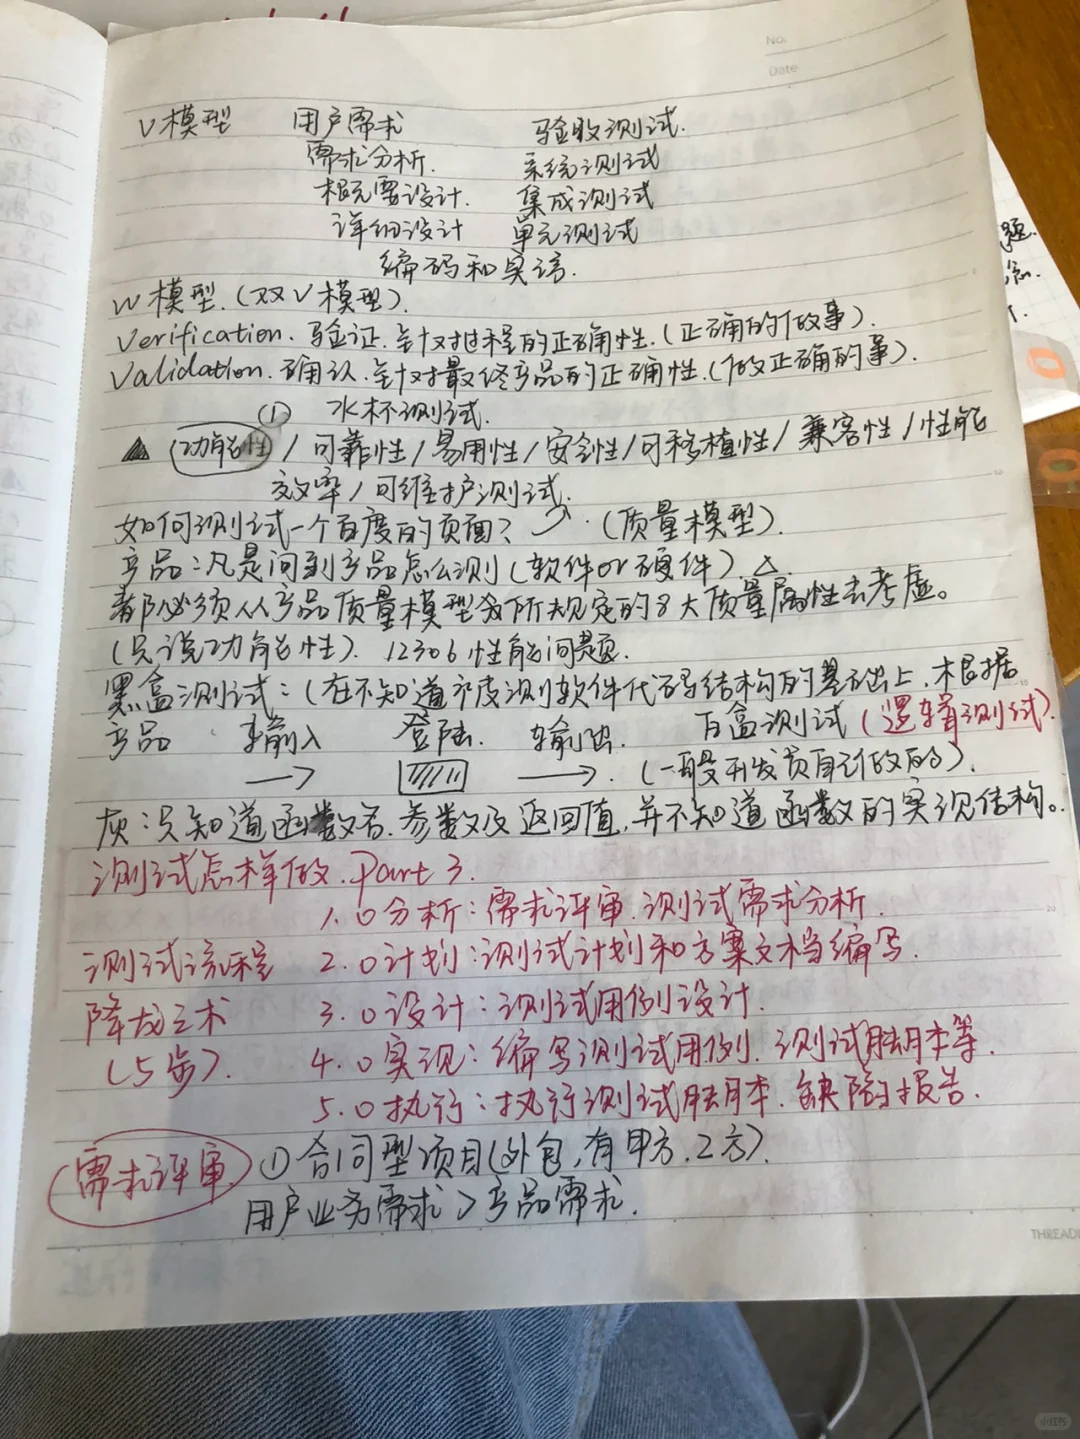 No.
Date
V模型 用户需求 验收测试.
需求分析. 系统测试
概要设计. 集成测试
详细设计 单元测试
编码和实该.
W模型.(双V模型).
Verification.验证.针对过程的正确性.(正确的做事).
Validation.确认.针对最终产品的正确性.(做正确的事).
① 水杯测试.
功能性/可靠性/易用性/安全性/可移植性/兼容性/性能
效率/可维护测试.
如何测试一个百度的页面? (质量模型).
产品:凡是问到产品怎么测(软件or硬件).△
都必须从产品质量模型所规定的8大质量属性去考虑。
(只说功能性). 12306性能问题.
黑盒测试:(在不知道被测软件代码结构的基础上.根据
产品 输入 登陆. 输出. 白盒测试(逻辑测试).
(一般开发员自己做的).
灰:只知道函数名.参数及返回值,并不知道函数的实现结构。
测试怎样做.Part 3.
1.0分析:需求评审.测试需求分析.
测试流程 2.0计划:测试计划和方案文档编写.
降龙三术 3.0设计:测试用例设计.
(5步). 4.0实现:编写测试用例.测试脚本等.
5.0执行:执行测试脚本.缺陷报告.
需求评审 ①合同型项目(外包,有甲方.乙方).
用户业务需求>产品需求.
题.
THREAD
小红书